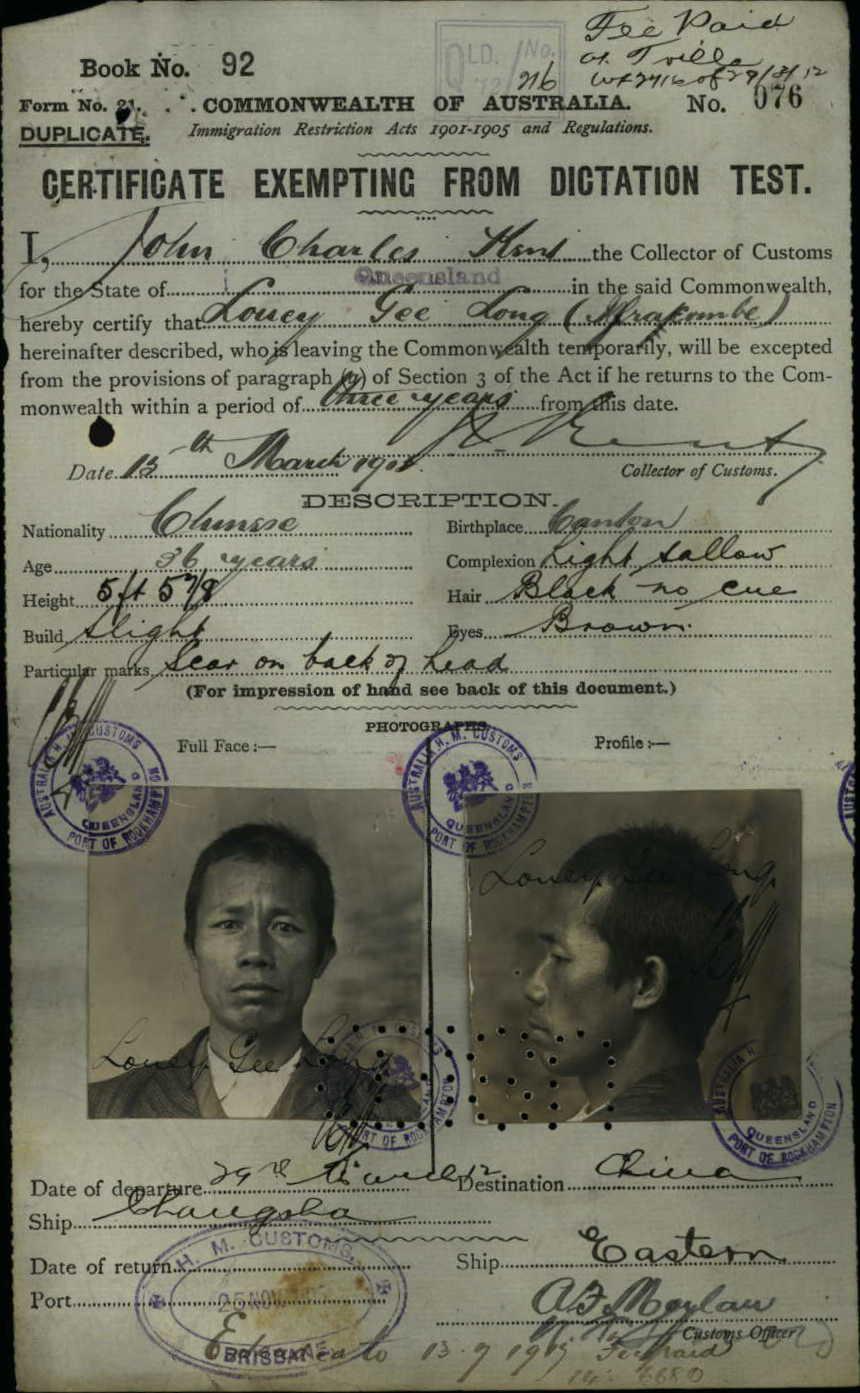 Fee Paid
Book No. 92
at T'ville
QLD. No.
216
of 29/3/12
Form No. 21. COMMONWEALTH OF AUSTRALIA. No. 076
DUPLICATE. Immigration Restriction Acts 1901-1905 and Regulations.
CERTIFICATE EXEMPTING FROM DICTATION TEST.
I, John Charles Kent the Collector of Customs
for the State of Queensland in the said Commonwealth,
hereby certify that Louey Gee Long
hereinafter described, who is leaving the Commonwealth temporarily, will be excepted
from the provisions of paragraph (a) of Section 3 of the Act if he returns to the Com-
monwealth within a period of three years from this date.
J. C. Kent
Date 15th March 1912. Collector of Customs.
DESCRIPTION.
Nationality Chinese Birthplace Canton
Age 36 years Complexion Light sallow
Height 5ft 5 7/8 Hair Black no cue
Build Slight Eyes Brown.
Particular marks Scar on back of head
(For impression of hand see back of this document.)
PHOTOGRAPHS.
Full Face:— Profile:—
AUSTRALIA H. M. CUSTOMS QUEENSLAND PORT OF ROCKHAMPTON
AUSTRALIA H. M. CUSTOMS QUEENSLAND PORT OF ROCKHAMPTON
Louey Gee Long
Louey Gee Long
AUSTRALIA H. QUEENSLAND PORT OF ROCKHAMPTON
Date of departure 29th March 12 Destination China
Ship Changsha
Date of return Ship Eastern
H. M. CUSTOMS.
25 NOV
BRISBANE
Port
Customs Officer
Extended to 13.9.1917 Fee paid